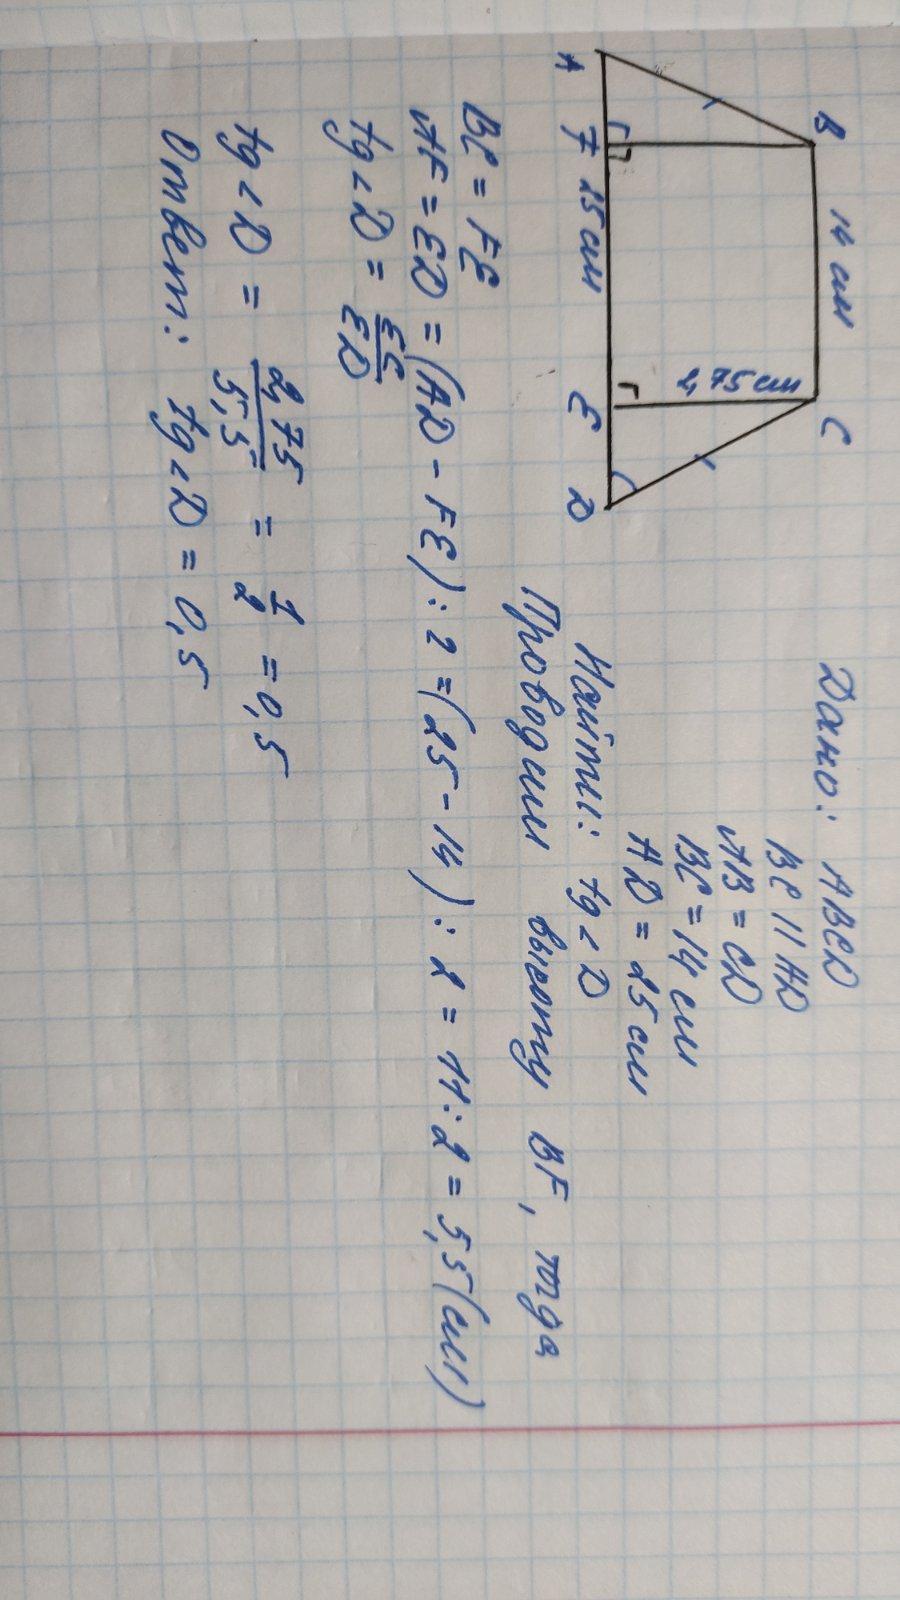 B 14 см C
2,75 см
A F 25 см E D
Дано: ABCD
BC || AD
AB = CD
BC = 14 см
AD = 25 см
Найти: tg < D
Проводим высоту BF, тогда
BC = FE
AF = ED = (AD - FE) : 2 = (25 - 14) : 2 = 11 : 2 = 5,5 (см)
tg < D = EC/ED
tg < D = 2,75/5,5 = 1/2 = 0,5
Ответ: tg < D = 0,5